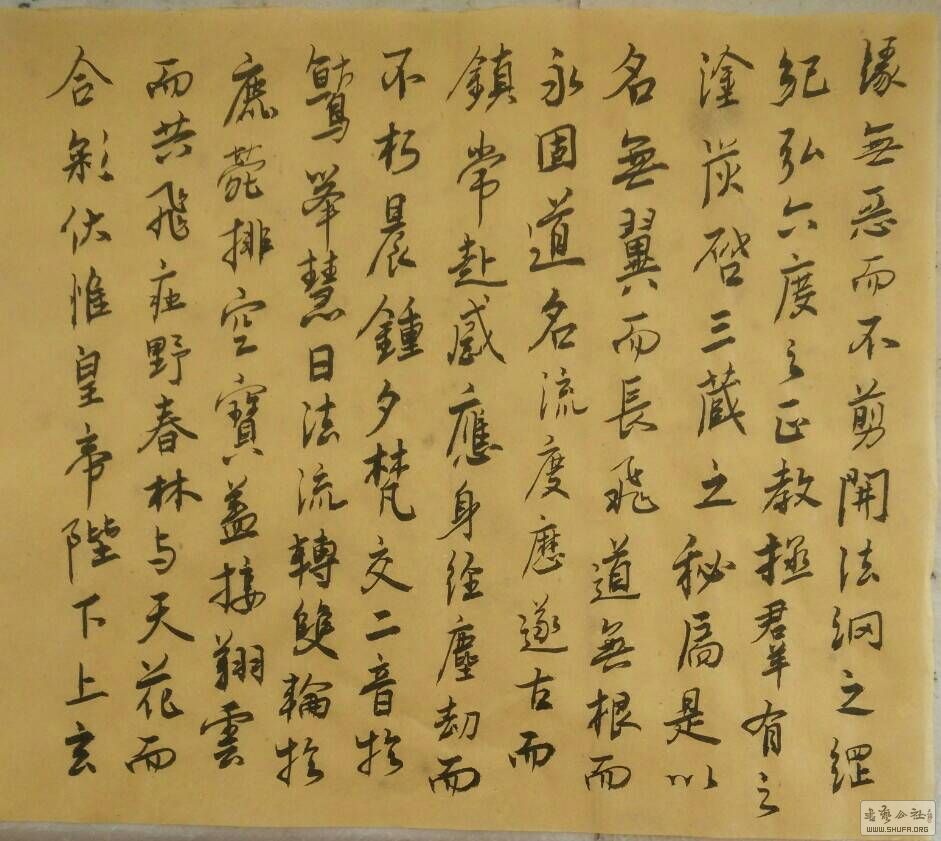 缘無惡而不剪開法網之綱
紀弘六度之正教拯群有之
塗炭啓三藏之秘扃是以
名無翼而長飛道無根而
永固道名流慶歷遂古而
鎮常赴感應身經塵劫而
不朽晨鍾夕梵交二音於
鷲峯慧日法流轉雙輪於
鹿菀排空寶蓋接翔雲
而共飛莊野春林与天花而
合彩伏惟皇帝陛下上玄
書法公社
WWW.SHUFA.ORG